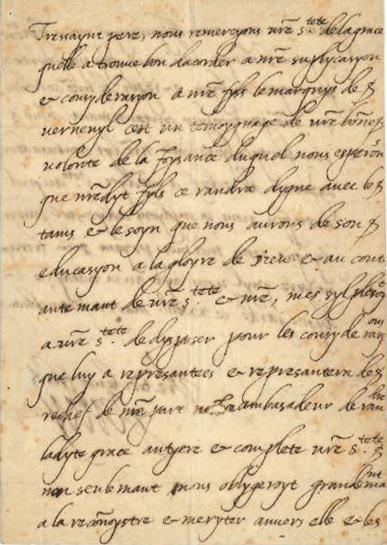 Tressaynt pere, nous remercyons vre S.tete de la grace
quelle a trouve bon dacorder a nre suplycasyon
& consyderasyon a nre fyls le marquys de
vernenyl cest un temoygnage de vre bonne
volonte de la
que nredyt fyls ce randra dygne avec le
tams & le soyn que nous aurons de son
educasyon a la gloyre de dieu & au cont
antemant de vre S.tete & nre, mes syl plaisoit
a vre S.tete de dysposer pour les consyderasyons
que luy a representees & representera de
rechef de nre part nre ambasadeur de
ladyte grace antyere & complete vre S.tete
non seulemant nous oblygeroyt grandemant
a la reconoystre & meryter anvers elle & les